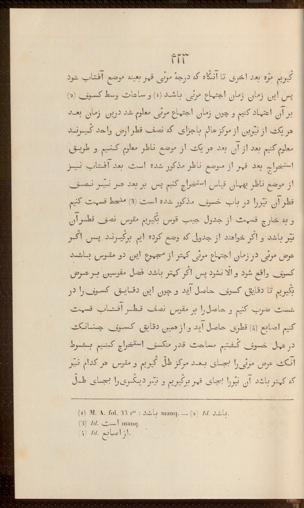 ٤٢٣
گیریم مرّة بعد اخری تا آنگاه که درجهٔ مرئی قمر بعینه موضع آفتاب شود
پس این زمان زمان اجتماع مرئی باشد (١) و ساعات وسط کسوف (٢)
بر آن اعتماد کنیم و چون زمان اجتماع مرئی معلوم شد درین زمان بعد
هر یک از نیّرین از مرکز عالم باجزای که نصف قطر ارض واحد گیرند
معلوم کنیم بعد از آن بعد هر یک از موضع ناظر معلوم کنیم و طریق
استخراج بعد قمر از موضع ناظر مذکور شده است بعد آفتاب نیز
از موضع ناظر بهمان قیاس استخراج کنیم پس بر بعد هر نیّر نصف
قطر آن نیّر را در باب خسوف مذکور شده است (٣) منحط قسمت کنیم
و به خارج قسمت از جدول جیب قوس بگیریم مقوس نصف قطر آن
نیّر باشد و اگر خواهند از جدولی که وضع کرده ایم برگیرند پس اگر
عرض مرئی در زمان اجتماع مرئی کمتر از مجموع این دو مقوس باشد
کسوف واقع شود و الّا نشود پس اگر کمتر باشد فضل مقوسین بر عرض
بگیریم تا دقایق کسوف حاصل آید و چون این دقایق کسوف را در
شست ضرب کنیم و حاصل را بر مقوس نصف قطر آفتاب قسمت
کنیم اصابع (٤) قطری حاصل آید و از همین دقایق کسوف چنانک
در عمل خسوف گفتیم مساحت قدر منکسف استخراج کنیم بشرط
آنک عرض مرئی را بجای بعد مرکز ظلّ گیریم و مقوس هر کدام نیّر
که کمتر باشد آن نیّر را بجای قمر برگیریم و نیّر دیگری را بجای ظلّ
(١) M. A. fol. 33 : باشد manq. — (٢) Id. باشد.
(٣) Id. است manq.
(٤) Id. از اصابع.